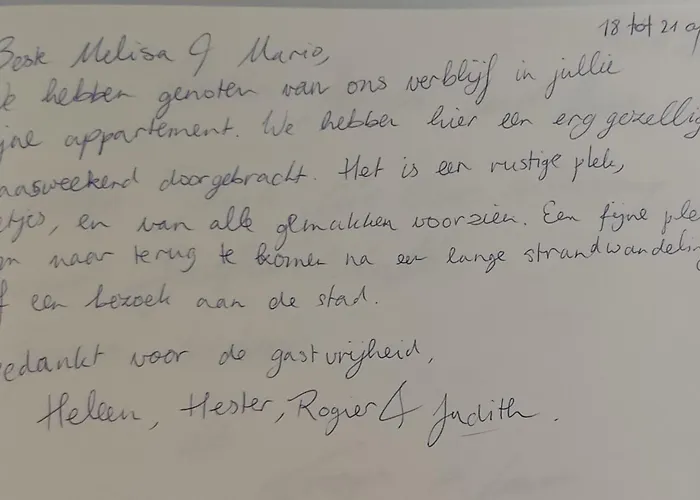 18 tot 21 ap
Beste Melisa & Mario,
We hebben genoten van ons verblijf in jullie
fijne appartement. We hebben hier een erg gezellig
paasweekend doorgebracht. Het is een rustige plek,
netjes, en van alle gemakken voorzien. Een fijne plek
om naar terug te komen na een lange strandwandeling
of een bezoek aan de stad.
Bedankt voor de gastvrijheid,
Heleen, Hester, Rogier & Judith.